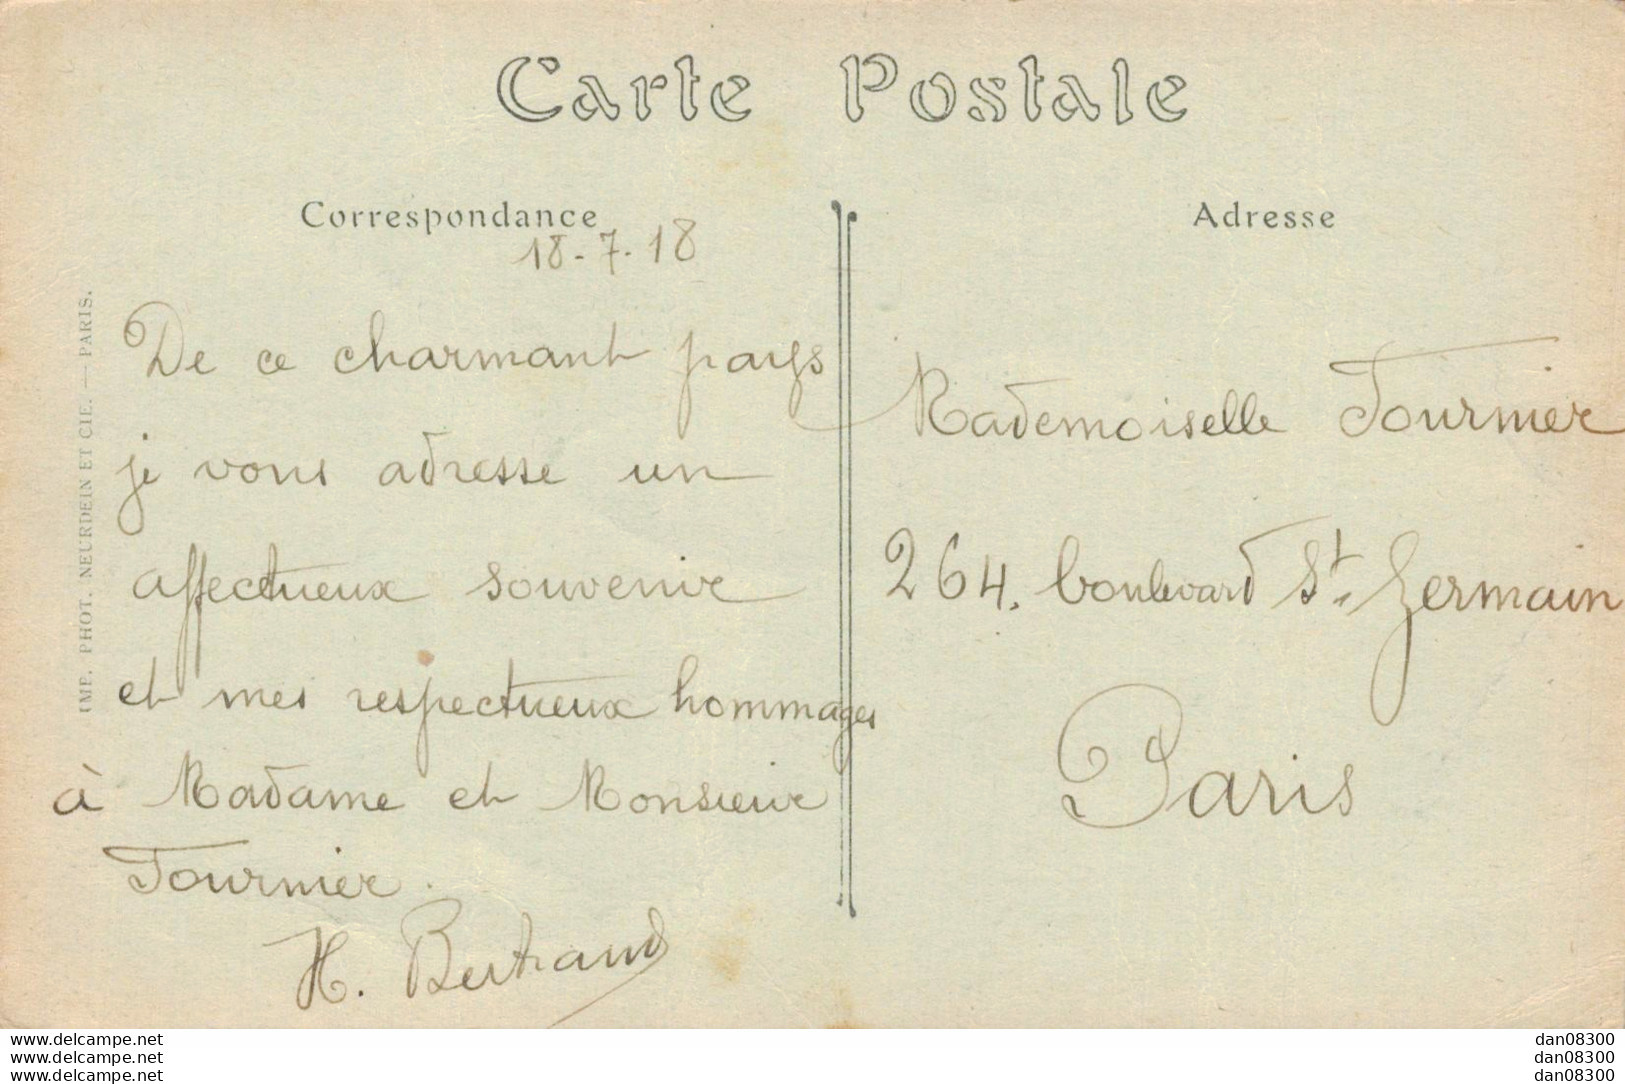 Carte Postale
Correspondance
18-7-18
De ce charmant pays
je vous adresse un
affectueux souvenir
et mes respectueux hommages
à Madame et Monsieur
Tournier.
H. Bertrand
Adresse
Mademoiselle Tournier
264. boulevard St. Germain
Paris
IMP. PHOT. NEURDEIN ET CIE. — PARIS.
www.delcampe.net
www.delcampe.net
www.delcampe.net
dan08300
dan08300
dan08300